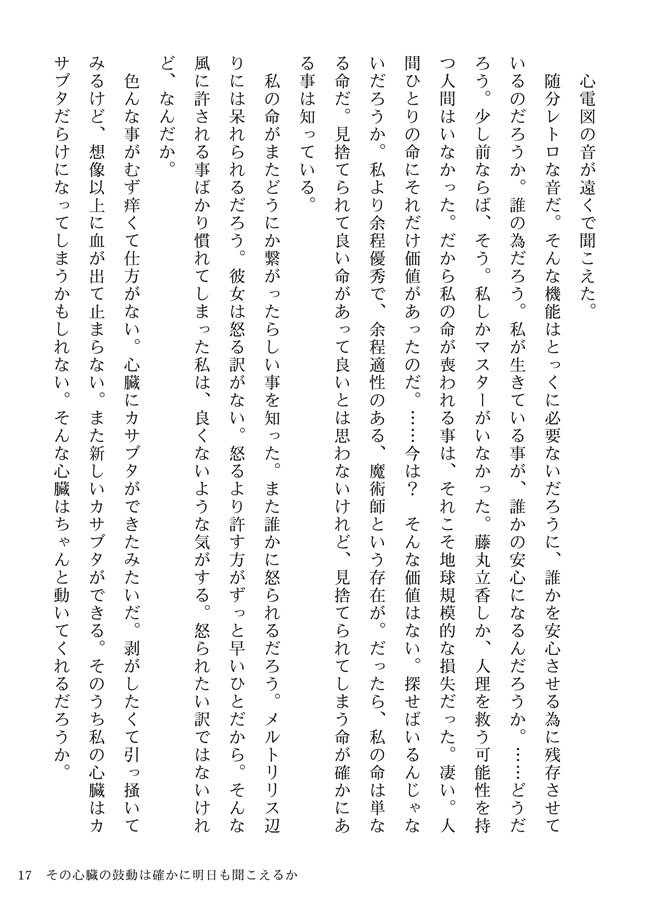 心電図の音が遠くで聞こえた。
随分レトロな音だ。そんな機能はとっくに必要ないだろうに、誰かを安心させる為に残存させて
いるのだろうか。誰の為だろう。私が生きている事が、誰かの安心になるんだろうか。……どうだ
ろう。少し前ならば、そう。私しかマスターがいなかった。藤丸立香しか、人理を救う可能性を持
つ人間はいなかった。だから私の命が喪われる事は、それこそ地球規模的な損失だった。凄い。人
間ひとりの命にそれだけ価値があったのだ。……今は?　そんな価値はない。探せばいるんじゃな
いだろうか。私より余程優秀で、余程適性のある、魔術師という存在が。だったら、私の命は単な
る命だ。見捨てられて良い命があって良いとは思わないけれど、見捨てられてしまう命が確かにあ
る事は知っている。
私の命がまたどうにか繋がったらしい事を知った。また誰かに怒られるだろう。メルトリリス辺
りには呆れられるだろう。彼女は怒る訳がない。怒るより許す方がずっと早いひとだから。そんな
風に許される事ばかり慣れてしまった私は、良くないような気がする。怒られたい訳ではないけれ
ど、なんだか。
色んな事がむず痒くて仕方がない。心臓にカサブタができたみたいだ。剥がしたくて引っ掻いて
みるけど、想像以上に血が出て止まらない。また新しいカサブタができる。そのうち私の心臓はカ
サブタだらけになってしまうかもしれない。そんな心臓はちゃんと動いてくれるだろうか。
17　その心臓の鼓動は確かに明日も聞こえるか